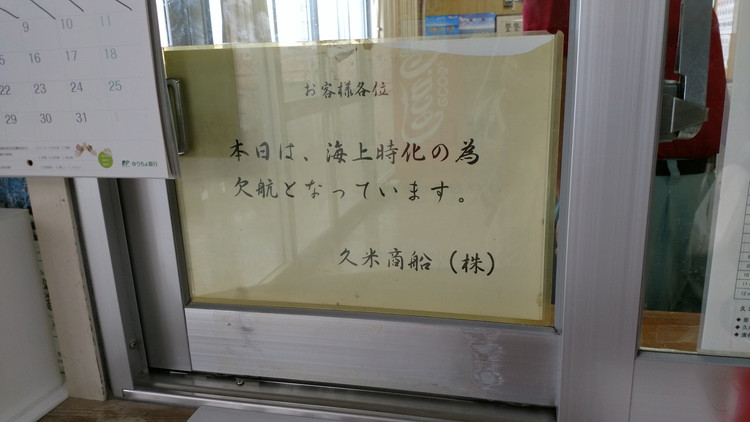 5
9
10
11
16
17
18
22
23
24
25
29
30
31
ゆうちょ銀行
お客様各位
本日は、海上時化の為
欠航となっています。
久米商船(株)